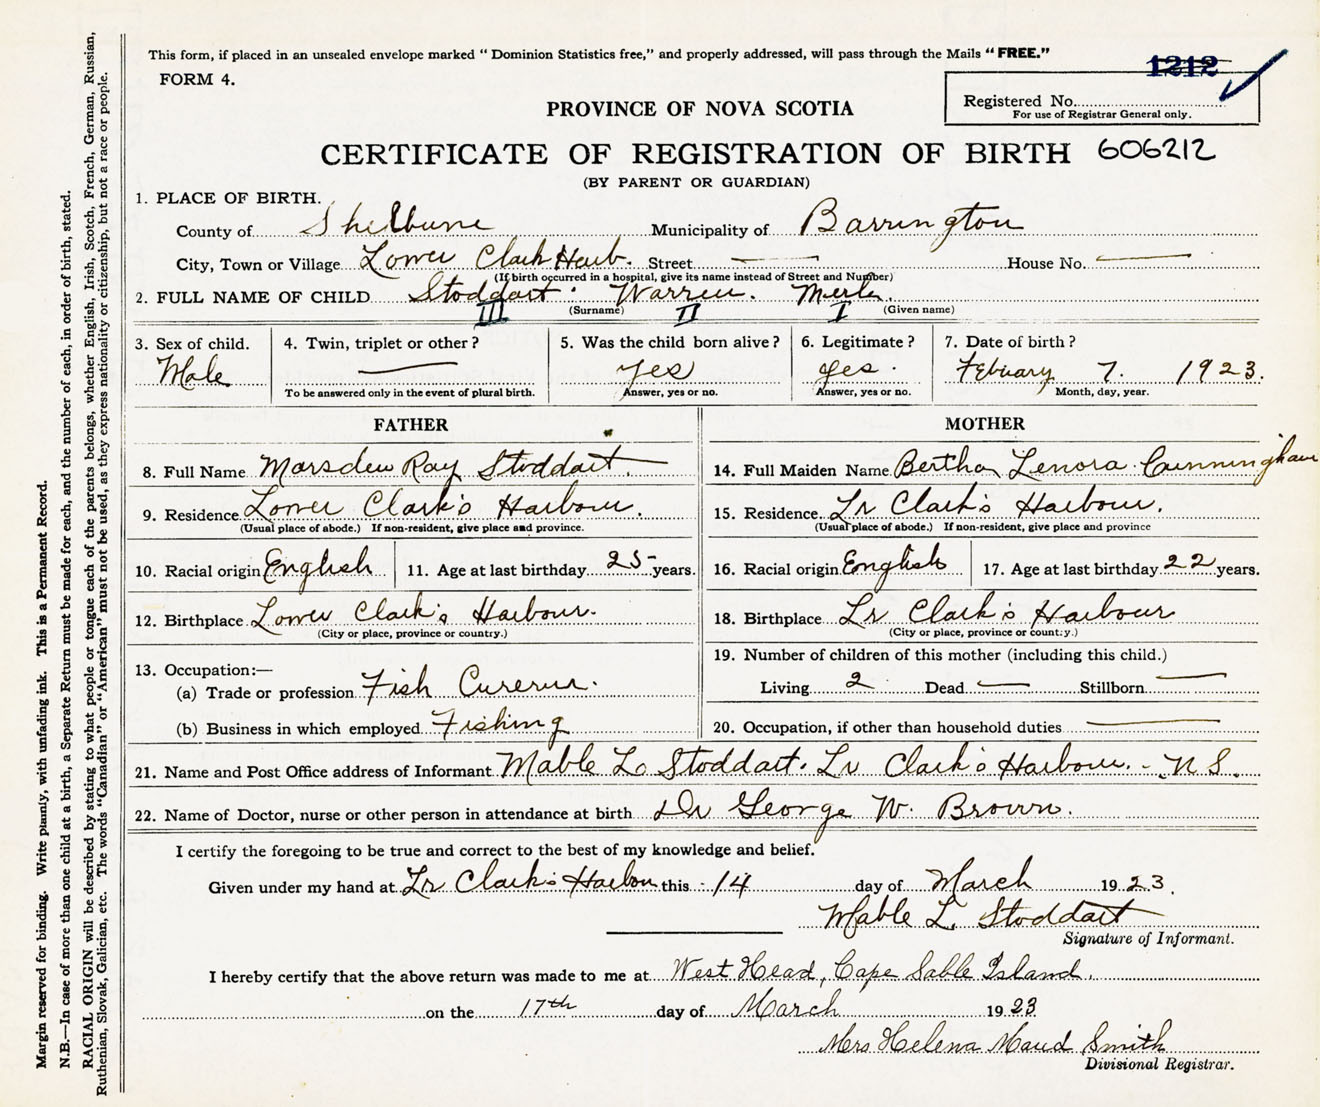 This form, if placed in an unsealed envelope marked “ Dominion Statistics free,” and properly addressed, will pass through the Mails “ FREE.”
FORM 4.
1212
Registered No.
For use of Registrar General only.
PROVINCE OF NOVA SCOTIA
CERTIFICATE OF REGISTRATION OF BIRTH 606212
(BY PARENT OR GUARDIAN)
1. PLACE OF BIRTH.
County of Shelburne Municipality of Barrington
City, Town or Village Lower Clark Harb. Street — House No. —
(If birth occurred in a hospital, give its name instead of Street and Number)
2. FULL NAME OF CHILD Stoddart. Warren. Merle.
III (Surname) II I (Given name)
3. Sex of child. 4. Twin, triplet or other? 5. Was the child born alive? 6. Legitimate? 7. Date of birth?
Male — yes yes. Febuary 7. 1923.
To be answered only in the event of plural birth. Answer, yes or no. Answer, yes or no. Month, day, year.
FATHER MOTHER
8. Full Name Marsden Ray Stoddart. 14. Full Maiden Name Bertha Lenora Cunningham
9. Residence Lower Clark's Harbour. 15. Residence. Lr Clark's Harbour.
(Usual place of abode.) If non-resident, give place and province. (Usual place of abode.) If non-resident, give place and province
10. Racial origin English 11. Age at last birthday 25 years. 16. Racial origin English 17. Age at last birthday 22 years.
12. Birthplace Lower Clark's Harbour. 18. Birthplace Lr Clark's Harbour
(City or place, province or country.) (City or place, province or country.)
13. Occupation:— 19. Number of children of this mother (including this child.)
(a) Trade or profession Fish Living 2 Dead — Stillborn —
(b) Business in which employed Fishing 20. Occupation, if other than household duties —
21. Name and Post Office address of Informant Mable L. Stoddart. Lr Clark's Harbour. - N S.
22. Name of Doctor, nurse or other person in attendance at birth Dr George W. Brown.
I certify the foregoing to be true and correct to the best of my knowledge and belief.
Given under my hand at Lr Clark's Harbour this 14 day of March 1923.
Mable L. Stoddart
Signature of Informant.
I hereby certify that the above return was made to me at West Head, Cape Sable Island.
on the 17th day of March 1923
Mrs Helena Maud Smith
Divisional Registrar.
Margin reserved for binding. Write plainly, with unfading ink. This is a Permanent Record.
N.B.—In case of more than one child at a birth, a Separate Return must be made for each, and the number of each, in order of birth, stated.
RACIAL ORIGIN will be described by stating to what people or tongue each of the parents belongs, whether English, Irish, Scotch, French, German, Russian,
Ruthenian, Slovak, Galician, etc. The words “Canadian” or “American” must not be used, as they express nationality or citizenship, but not a race or people.